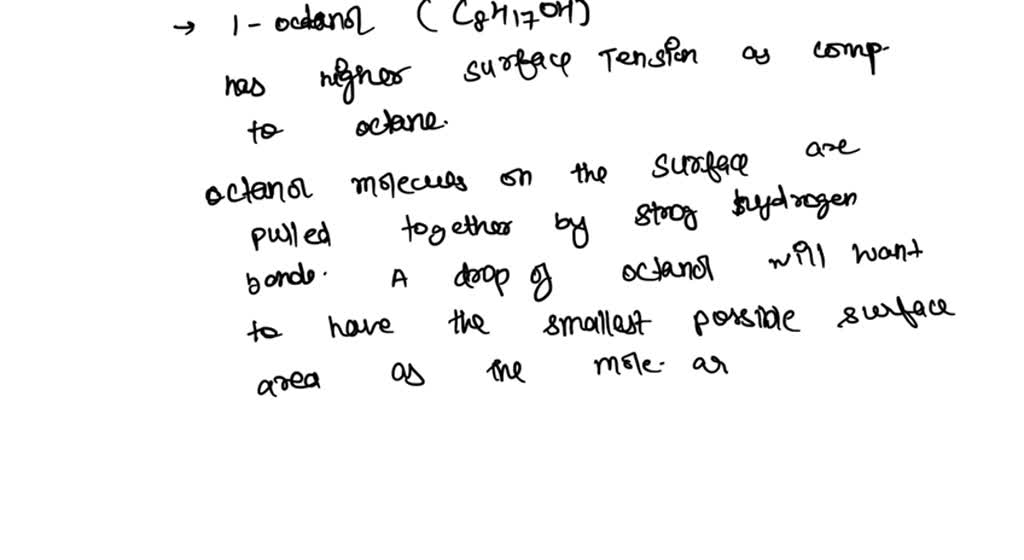 → 1-octanol (C8H17OH)
has higher surface Tension as comp.
to octane.
octanol molecues on the surface are
pulled together by strog hydrogen
bonds. A drop of octanol will want
to have the smallest possible surface
area as the mole. ar